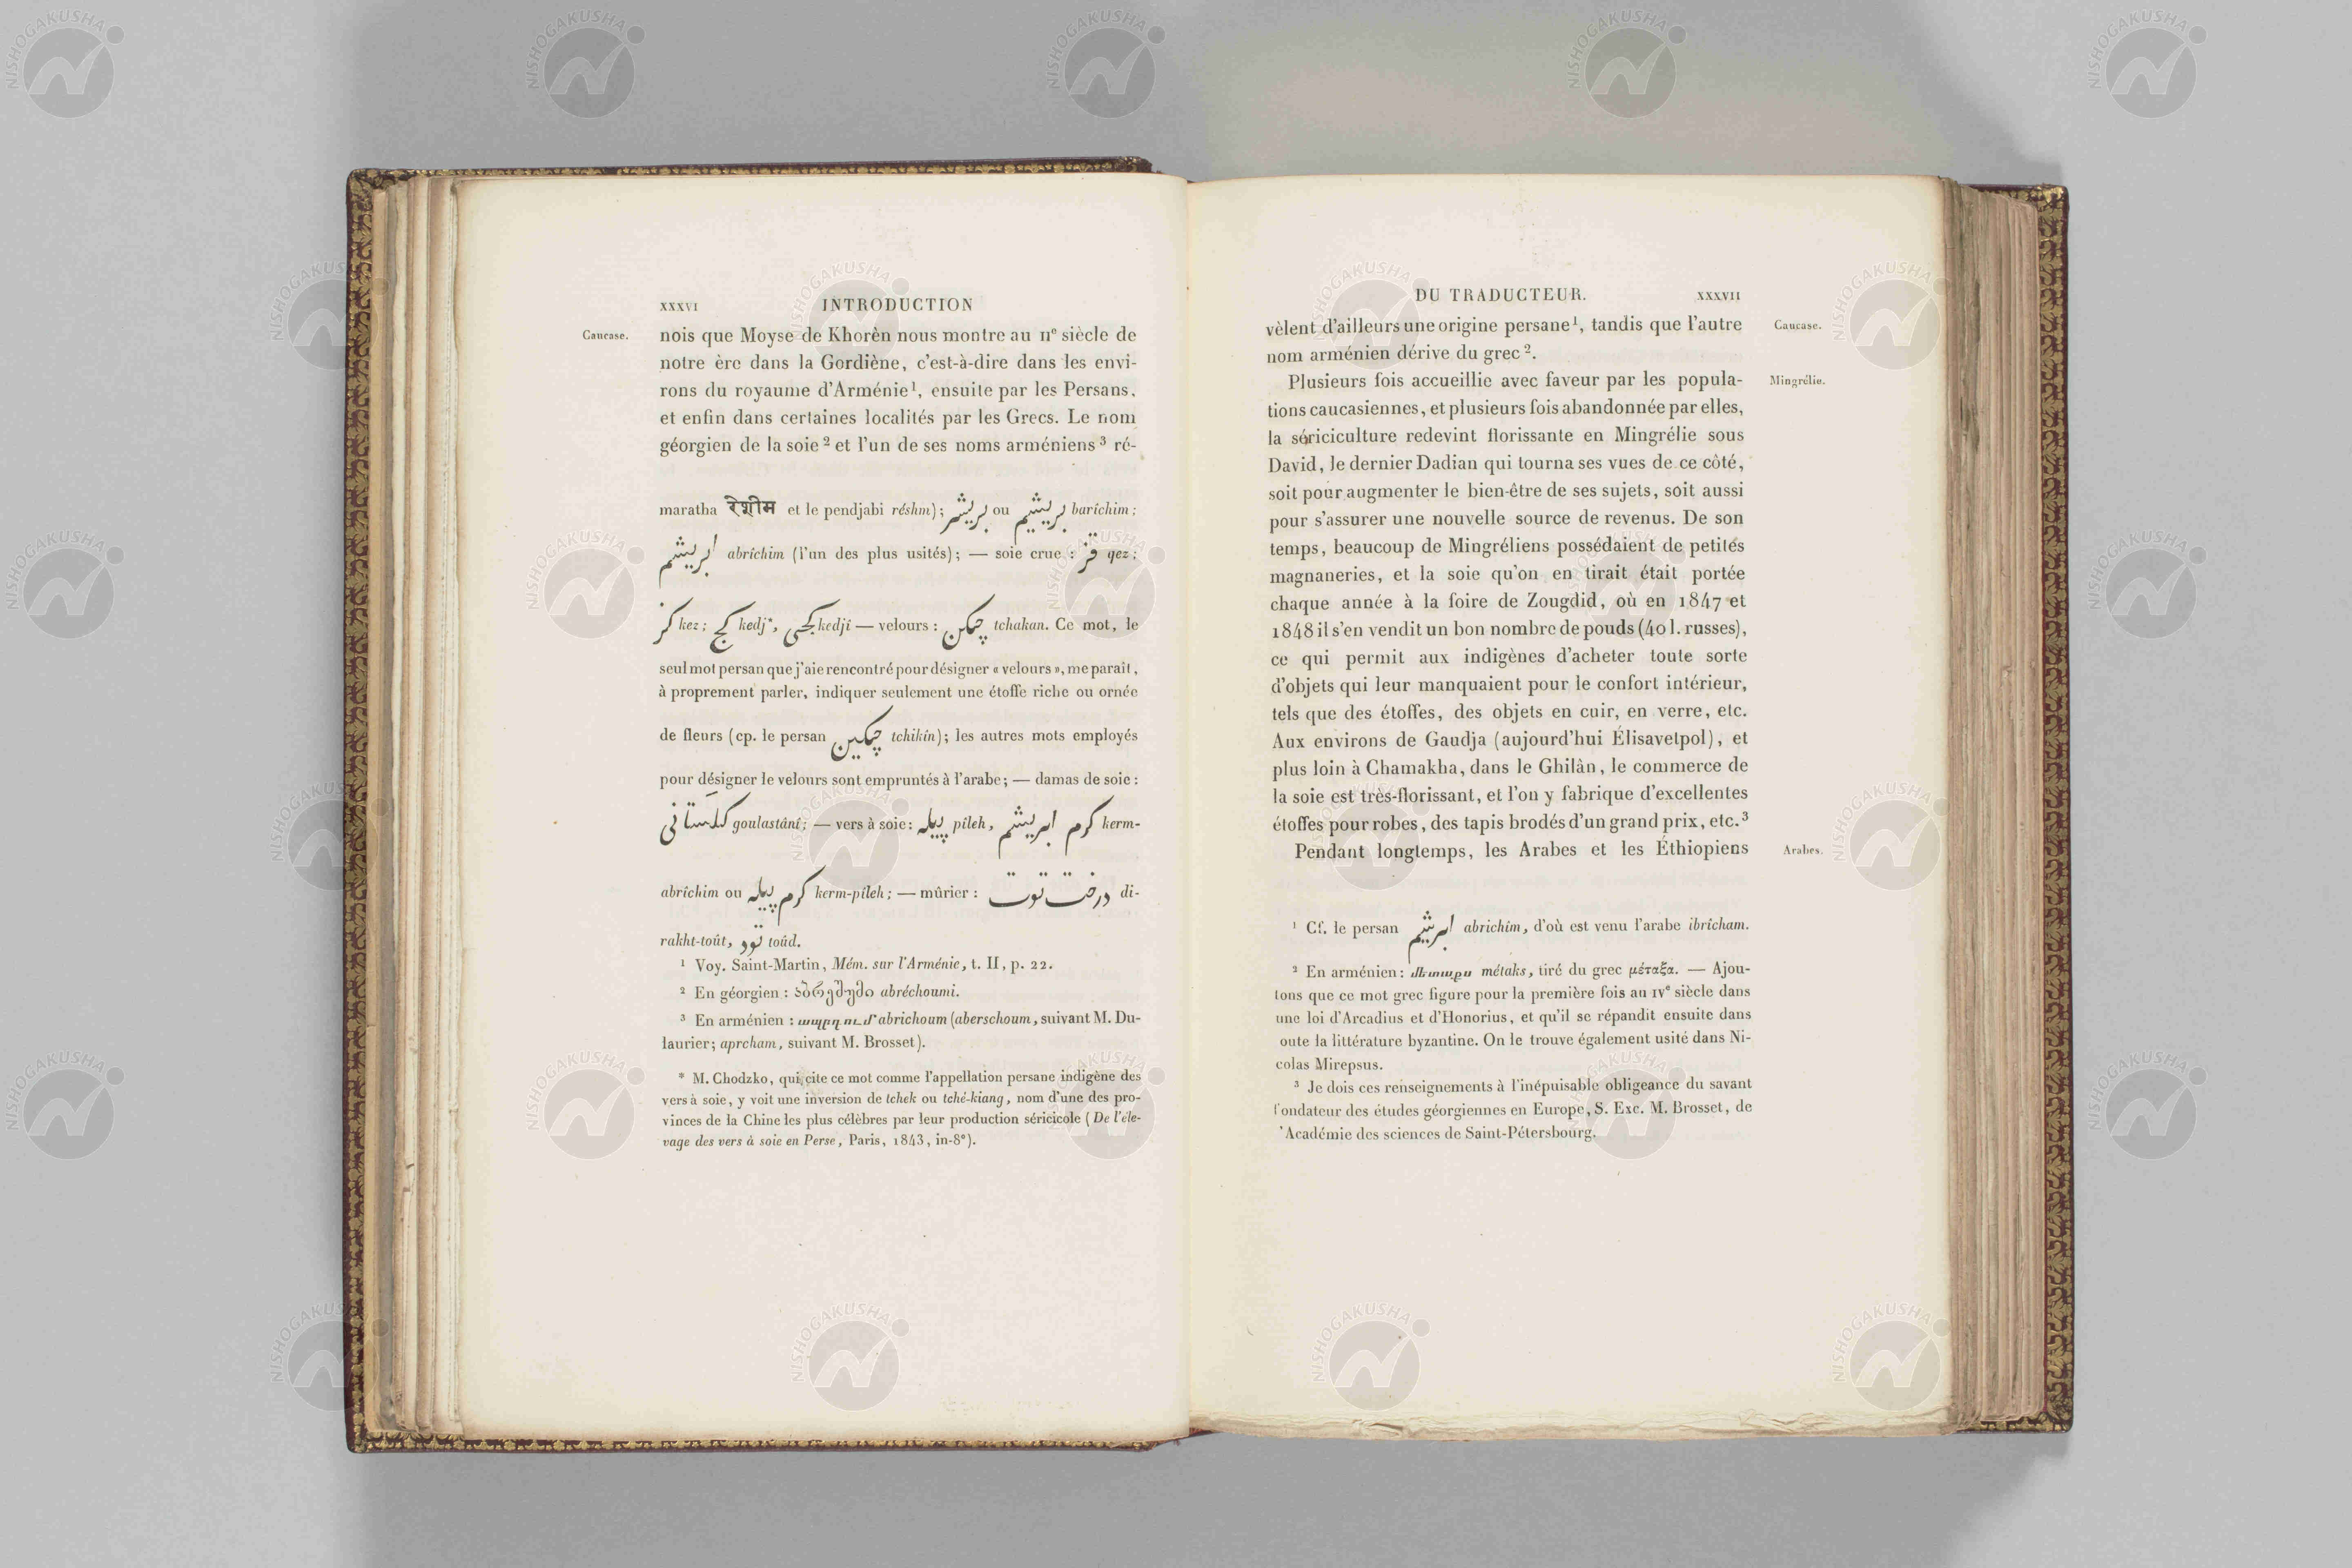 XXXVI INTRODUCTION
Caucase.
nois que Moyse de Khorên nous montre au IIe siècle de
notre ère dans la Gordiène, c'est-à-dire dans les envi-
rons du royaume d'Arménie¹, ensuite par les Persans,
et enfin dans certaines localités par les Grecs. Le nom
géorgien de la soie² et l'un de ses noms arméniens³ ré-
maratha रेशीम et le pendjabi réshm); بریشم ou بریشیم barîchim;
ابریشم abrîchim (l'un des plus usités); — soie crue : قز qez;
کز kez; کج kedj*, کجی kedji — velours : چکن tchakan. Ce mot, le
seul mot persan que j'aie rencontré pour désigner « velours », me paraît,
à proprement parler, indiquer seulement une étoffe riche ou ornée
de fleurs (cp. le persan چکین tchikîn); les autres mots employés
pour désigner le velours sont empruntés à l'arabe; — damas de soie :
گلستانی goulastânî; — vers à soie : پیله pîleh, کرم ابریشم kerm-
abrîchim ou کرم پیله kerm-pîleh; — mûrier : درخت توت di-
rakht-toût, تود toûd.
¹ Voy. Saint-Martin, Mém. sur l'Arménie, t. II, p. 22.
² En géorgien : აბრეშუმი abréchoumi.
³ En arménien : ապրղում abrichoum (aberschoum, suivant M. Du-
laurier; aprcham, suivant M. Brosset).
* M. Chodzko, qui cite ce mot comme l'appellation persane indigène des
vers à soie, y voit une inversion de tchek ou tché-kiang, nom d'une des pro-
vinces de la Chine les plus célèbres par leur production séricicole (De l'éle-
vage des vers à soie en Perse, Paris, 1843, in-8°).
DU TRADUCTEUR. XXXVII
vèlent d'ailleurs une origine persane¹, tandis que l'autre
Caucase.
nom arménien dérive du grec².
Plusieurs fois accueillie avec faveur par les popula-
Mingrélie.
tions caucasiennes, et plusieurs fois abandonnée par elles,
la sériciculture redevint florissante en Mingrélie sous
David, le dernier Dadian qui tourna ses vues de ce côté,
soit pour augmenter le bien-être de ses sujets, soit aussi
pour s'assurer une nouvelle source de revenus. De son
temps, beaucoup de Mingréliens possédaient de petites
magnaneries, et la soie qu'on en tirait était portée
chaque année à la foire de Zougdid, où en 1847 et
1848 il s'en vendit un bon nombre de pouds (40 l. russes),
ce qui permit aux indigènes d'acheter toute sorte
d'objets qui leur manquaient pour le confort intérieur,
tels que des étoffes, des objets en cuir, en verre, etc.
Aux environs de Gaudja (aujourd'hui Élisavetpol), et
plus loin à Chamakha, dans le Ghilân, le commerce de
la soie est très-florissant, et l'on y fabrique d'excellentes
étoffes pour robes, des tapis brodés d'un grand prix, etc.³
Pendant longtemps, les Arabes et les Éthiopiens
Arabes.
¹ Cf. le persan ابریشم abrichîm, d'où est venu l'arabe ibrîcham.
² En arménien : մետաքս métaks, tiré du grec μέταξα. — Ajou-
tons que ce mot grec figure pour la première fois au IVe siècle dans
une loi d'Arcadius et d'Honorius, et qu'il se répandit ensuite dans
oute la littérature byzantine. On le trouve également usité dans Ni-
colas Mirepsus.
³ Je dois ces renseignements à l'inépuisable obligeance du savant
fondateur des études géorgiennes en Europe, S. Exc. M. Brosset, de
'Académie des sciences de Saint-Pétersbourg.